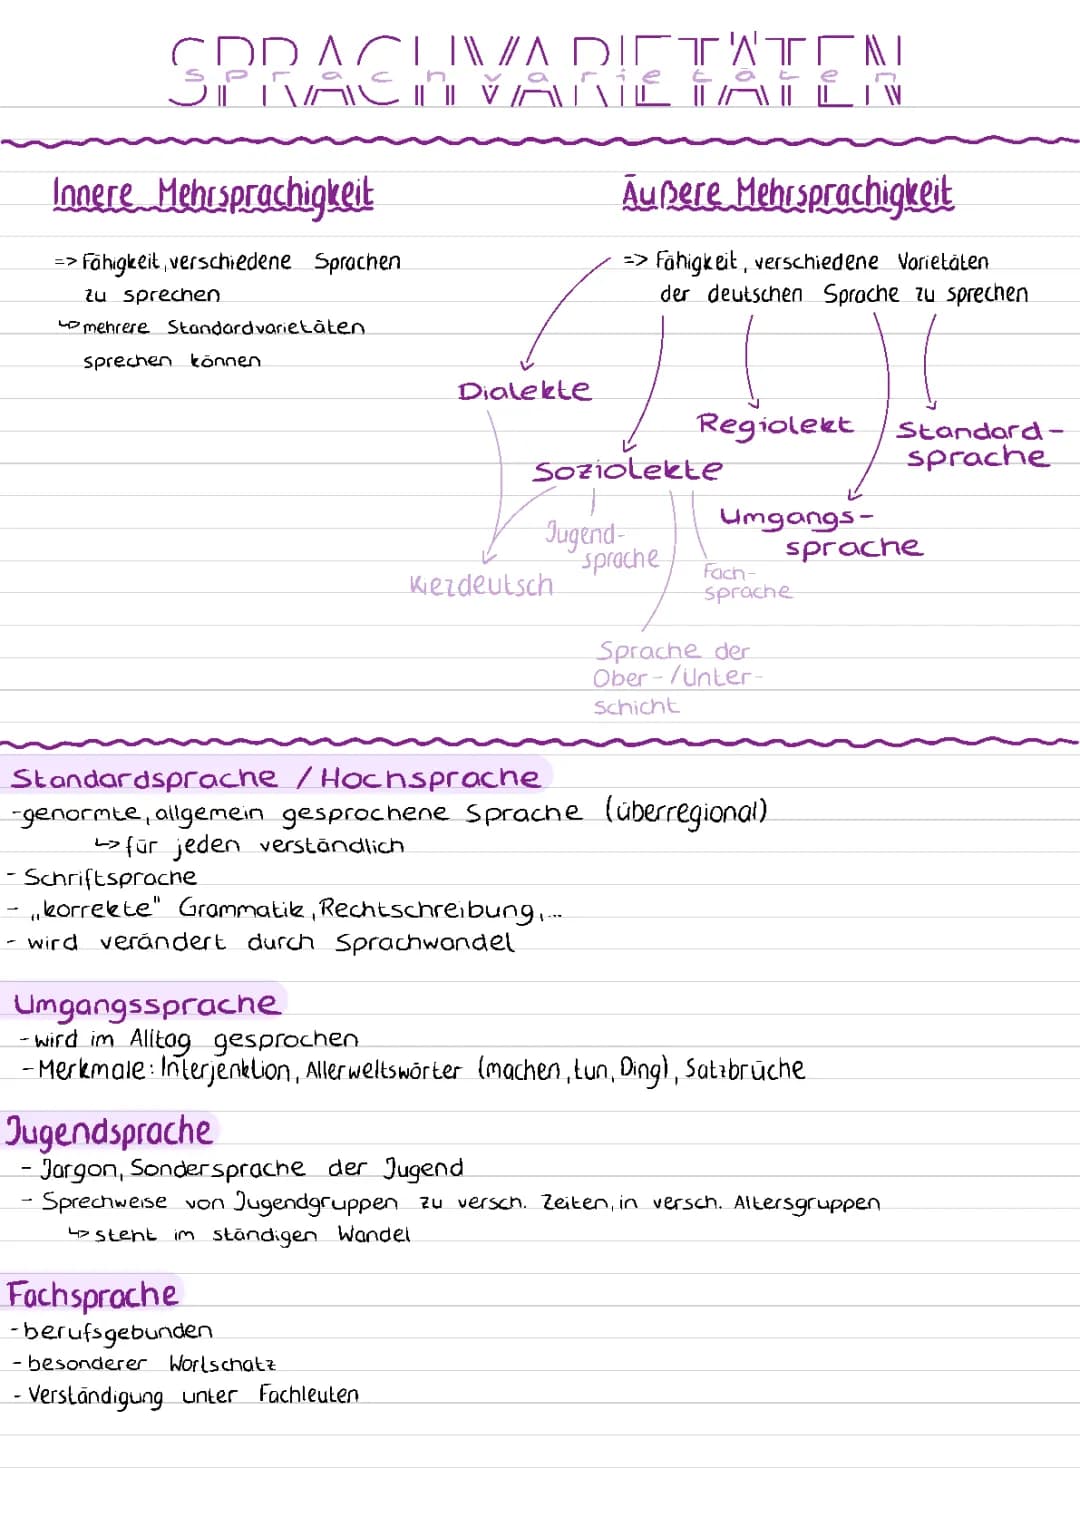 SPRACHVARIETÄTEN
Sprachvarietäten
Innere Mehrsprachigkeit
=> Fähigkeit, verschiedene Sprachen
zu sprechen
↳ mehrere Standardvarietäten
sprechen können
Äußere Mehrsprachigkeit
=> Fähigkeit, verschiedene Varietäten
der deutschen Sprache zu sprechen
Dialekte
Regiolekt
Standard-
sprache
Soziolekte
Umgangs-
sprache
Jugend-
sprache
Kiezdeutsch
Fach-
sprache
Sprache der
Ober-/Unter-
schicht
Standardsprache / Hochsprache
-genormte, allgemein gesprochene Sprache (überregional)
↳ für jeden verständlich
- Schriftsprache
- „korrekte" Grammatik, Rechtschreibung,...
- wird verändert durch Sprachwandel
Umgangssprache
- wird im Alltag gesprochen
- Merkmale: Interjenktion, Allerweltswörter (machen, tun, Ding), Satzbrüche
Jugendsprache
- Jargon, Sondersprache der Jugend
- Sprechweise von Jugendgruppen zu versch. Zeiten, in versch. Altersgruppen
↳ steht im ständigen Wandel
Fachsprache
- berufsgebunden
- besonderer Wortschatz
- Verständigung unter Fachleuten